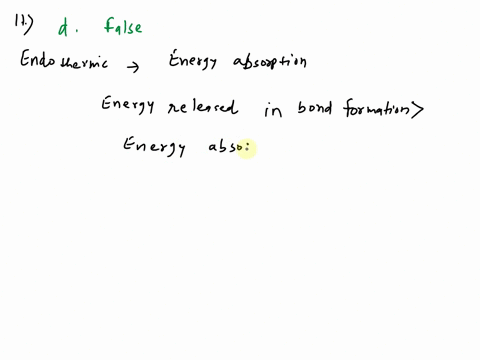 11.) d. false
Endothermic → Energy absorption
Energy released in bond formation >
Energy abso